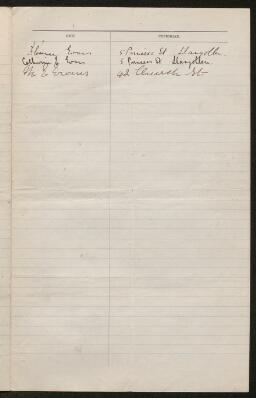 ENW. CYFEIRIAD.
Florence Evans 5 Princess St Llangollen
Catherine J. Evans 5 Princess St Llangollen
M E Evans 42 Church St